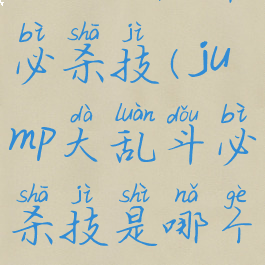 bì shā jì
必杀技(ju
dà luàn dǒu bì
mp大乱斗必
shā jì shì nǎ gè
杀技是哪个